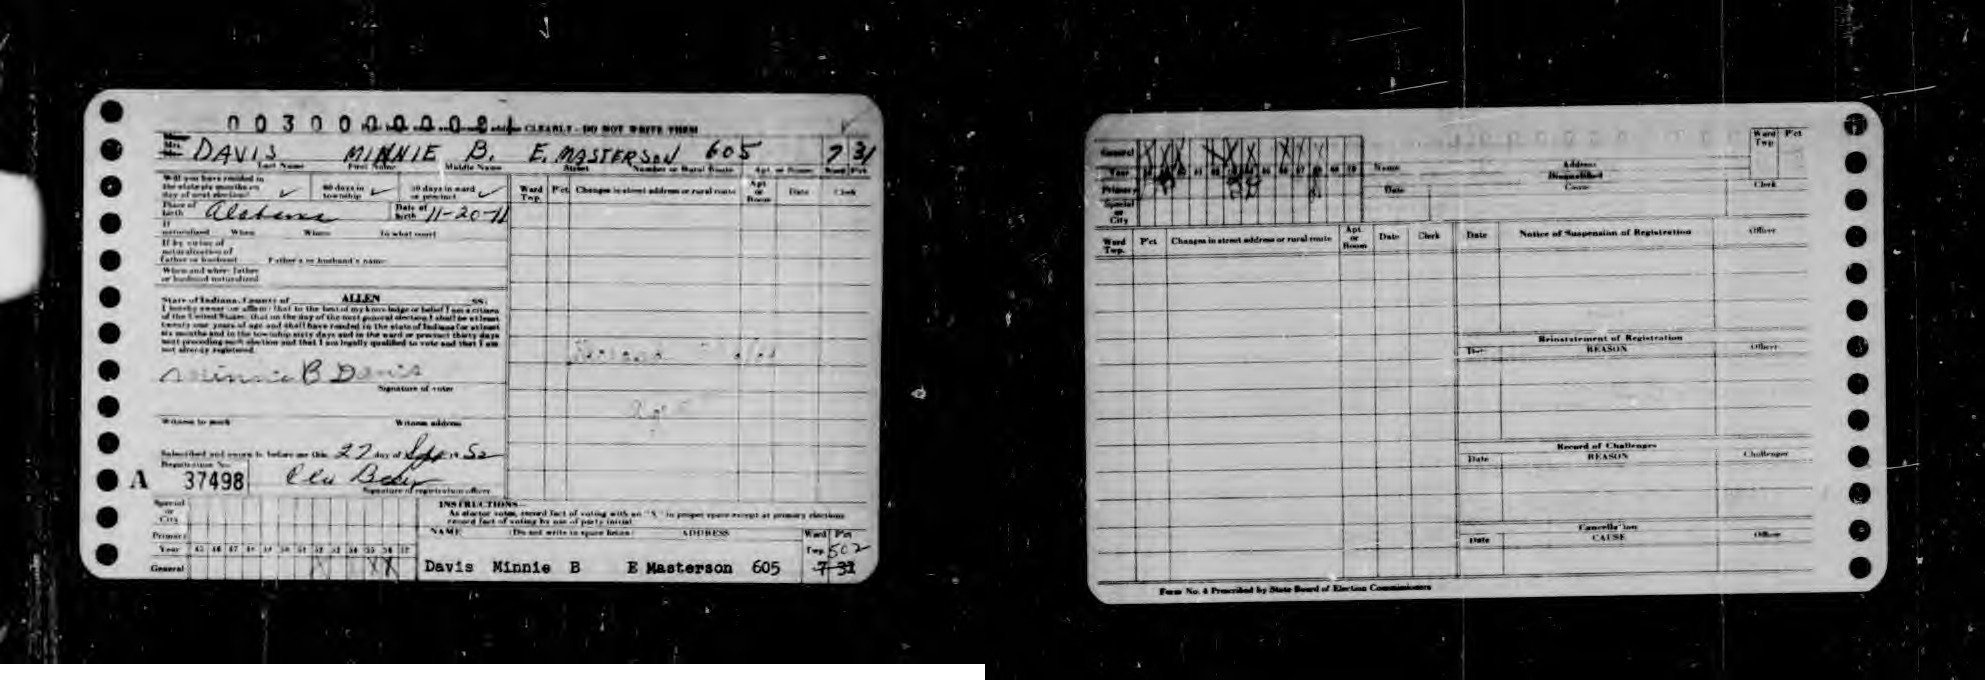 0 0 3 0 0 0 0 0 0 8 1
CLEARLY - DO NOT WRITE THEM
DAVIS MINNIE B. E. MASTERSON 605 7 31
Last Name First Name Middle Name Street Number or Rural Route Apt. or Room Ward Pct
Will you have resided in
the state six months on
day of next election? ✓ 60 days in
township ✓ 30 days in ward
or precinct ✓
Ward
Twp. P'ct. Changes in street address or rural route Apt
or
Room Date Clerk
Place of
birth Alabama Date of
birth 11-20-11
If
naturalized When Where In what court
If by virtue of
naturalization of
father or husband Father's or husband's name
When and where father
or husband naturalized
State of Indiana, County of ALLEN SS:
I hereby swear (or affirm) that to the best of my knowledge or belief I am a citizen
of the United States; that on the day of the next general election I shall be at least
twenty one years of age and shall have resided in the state of Indiana for at least
six months and in the township sixty days and in the ward or precinct thirty days
next preceding such election and that I am legally qualified to vote and that I am
not already registered.
Minnie B Davis
Signature of voter
Witness to mark Witness address
Subscribed and sworn to before me this 27 day of Sept 19 52
Registration No.
A 37498
Signature of registration officer
Special
or
City
Primary
Year 45 46 47 48 49 50 51 52 53 54 55 56 57
General X X X
INSTRUCTIONS—
As elector votes, record fact of voting with an "X" in proper space except at primary elections
record fact of voting by use of party initial.
NAME (Do not write in space below) ADDRESS Ward P'ct
Twp. 502
Davis Minnie B E Masterson 605 7 31
General
Year
Primary
Special
or
City
Name Address
Disqualified
Date Cause Clerk
Ward
Twp P'ct
Ward
Twp. P'ct Changes in street address or rural route Apt
or
Room Date Clerk
Date Notice of Suspension of Registration Officer
Reinstatement of Registration
Date REASON Officer
Record of Challenges
Date REASON Challenger
Cancellation
Date CAUSE Officer
Form No. 4 Prescribed by State Board of Election Commissioners